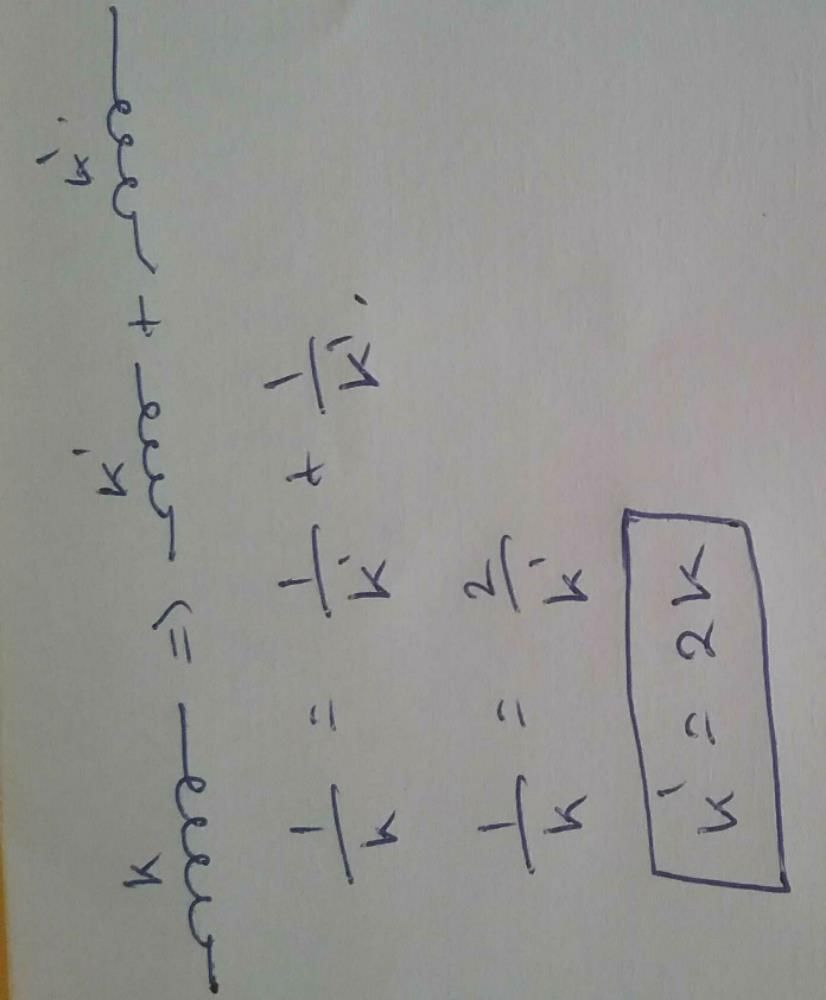 k ⇒ k' + k'
1/k = 1/k' + 1/k'.
1/k = 2/k'
k' = 2k